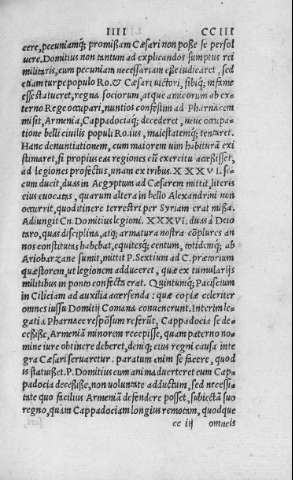 IIII CCIII
cere, pecuniamq; promissam Cæsari non posse se persol
uere. Domitius non tantum ad explicandos sumptus rei
militaris, cum pecuniam necessariam esse iudicaret, sed
etiam turpe populo Ro. & Cæsari uictori, sibiq; infame
esse statueret, regna sociorum, atque amicorum ab ex
terno Rege occupari, nuntios confestim ad Pharnacem
misit, Armenia, Cappadociaq; decederet, neue occupa
tione belli ciuilis populi Ro. ius, maiestatemq; tentaret.
Hanc denuntiationem, cum maiorem uim habituram exi
stimaret, si propius eas regiones cum exercitu accessisset,
ad legiones profectus, unam ex tribus. XXXVI. se-
cum ducit, duas in Aegyptum ad Cæsarem mittit, literis
eius euocatas, quarum altera in bello Alexandrino non
occurrit, quod itinere terrestri per Syriam erat missa.
Adiungit Cn. Domitius legioni. XXXVI. duas à Deio
taro, quas disciplina, atq; armatura nostra cõplures an
nos constitutas habebat, equitesq; centum, totidemq; ab
Ariobarzane sumit, mittit P. Sextium ad C. prætorium
quæstorem, ut legionem adduceret, quæ ex tumularijs
militibus in ponto confecta erat. Quintumq; Patisium
in Ciliciam ad auxilia accersenda: quæ copiæ celeriter
omnes iussu Domitij Comana conuenerunt. Interim le
gati à Pharnace responsum referũt, Cappadocia se de
cessisse, Armeniã minorem recepisse, quam paterno no
mine iure obtinere deberet, deniq; eius regni causa inte
gra Cæsari seruaretur. paratum enim se facere, quod
is statuisset. P. Domitius eum animaduerteret eum Cap
padocia decessisse, non uoluntate adductum, sed necessi
tate quo facilius Armeniã defendere posset, subiectã suo
regno, quàm Cappadociam longius remotam, quodque
cc iij omneis